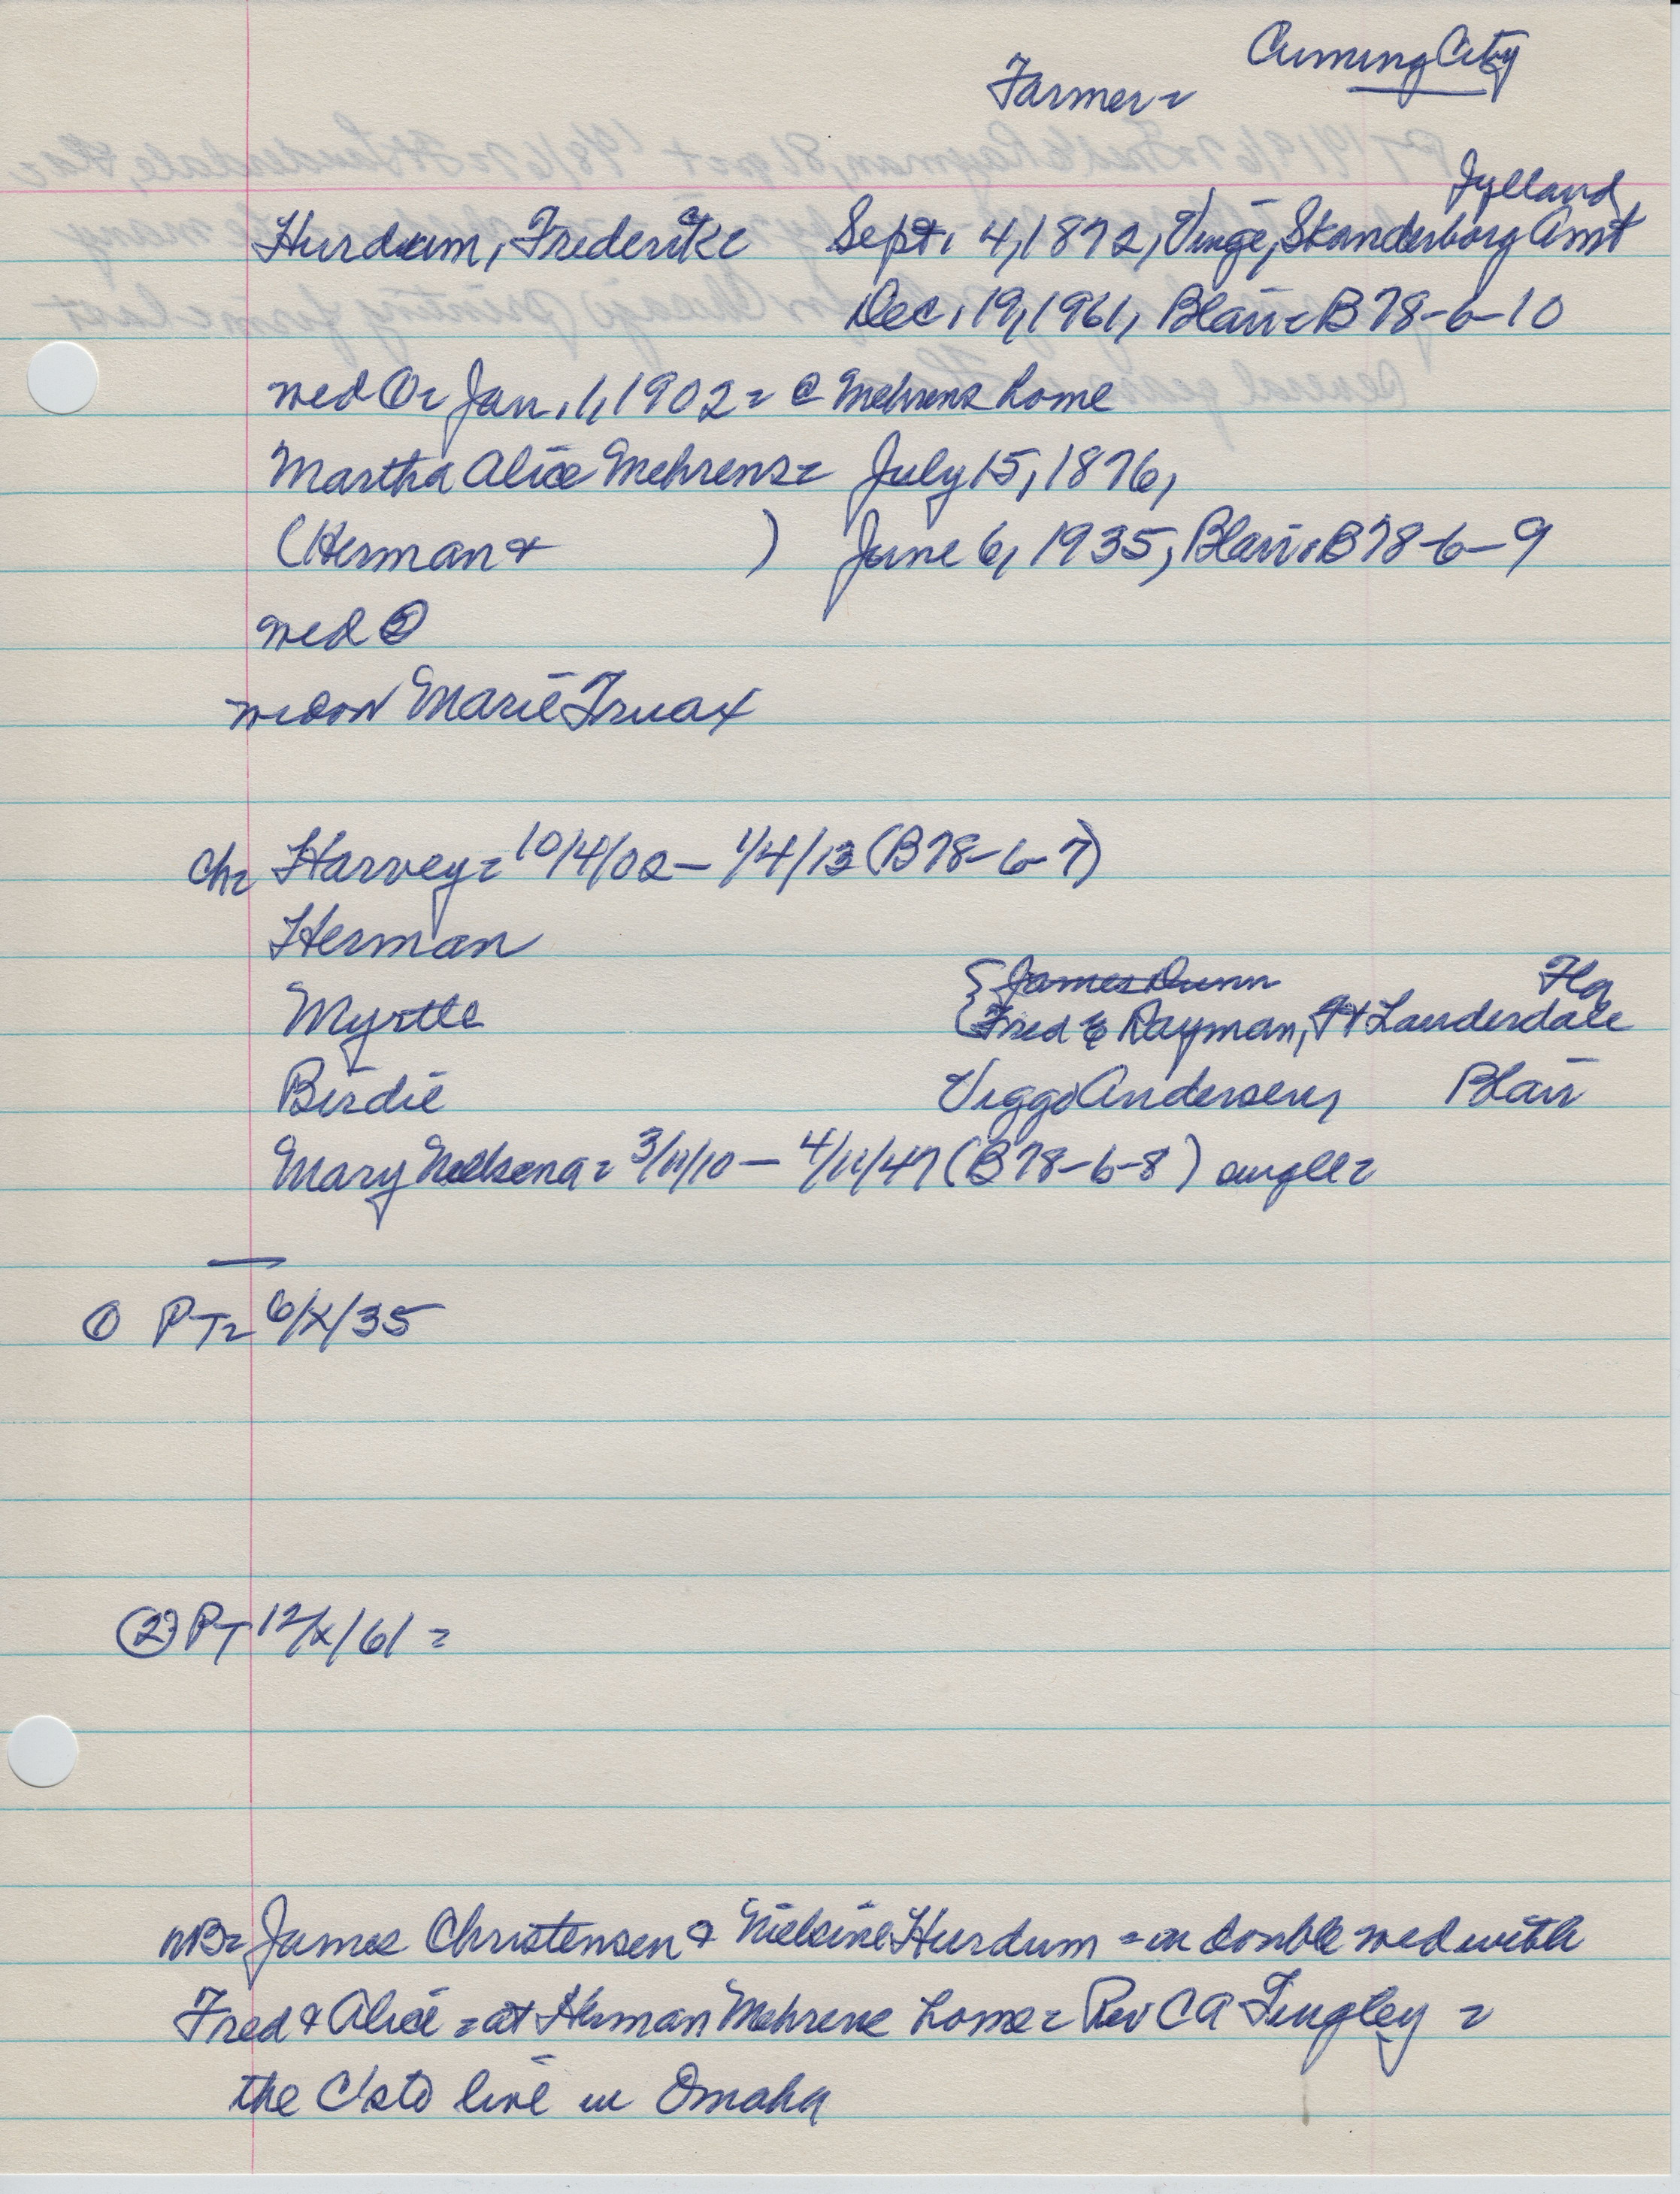 Cuming City
Farmer =
Jylland
Hurdum, Frederik Sept. 4, 1872, Vinge, Skanderborg Amt
Dec. 19, 1961, Blair = B78-6-10
wed ① = Jan. 1, 1902 = @ Mehrens home
Martha Alice Mehrens = July 15, 1876,
(Herman & ) June 6, 1935, Blair = B78-6-9
wed ②
widow Marie Truax
ch = Harvey = 10/4/02 - 1/4/13 (B78-6-7)
Herman
James Dunn Fla
Myrtle Fred E Rayman, Ft Lauderdale
Birdie Viggo Andersen, Blair
Mary = 3/11/10 - 4/11/47 (B78-6-8)
① PT = 6/X/35
② PT 12/X/61 =
NB = James Christensen & Nielsine Hurdum = in double wed with
Fred & Alice = at Herman Mehrens home = Rev CA Tingley =
the C'sts live in Omaha